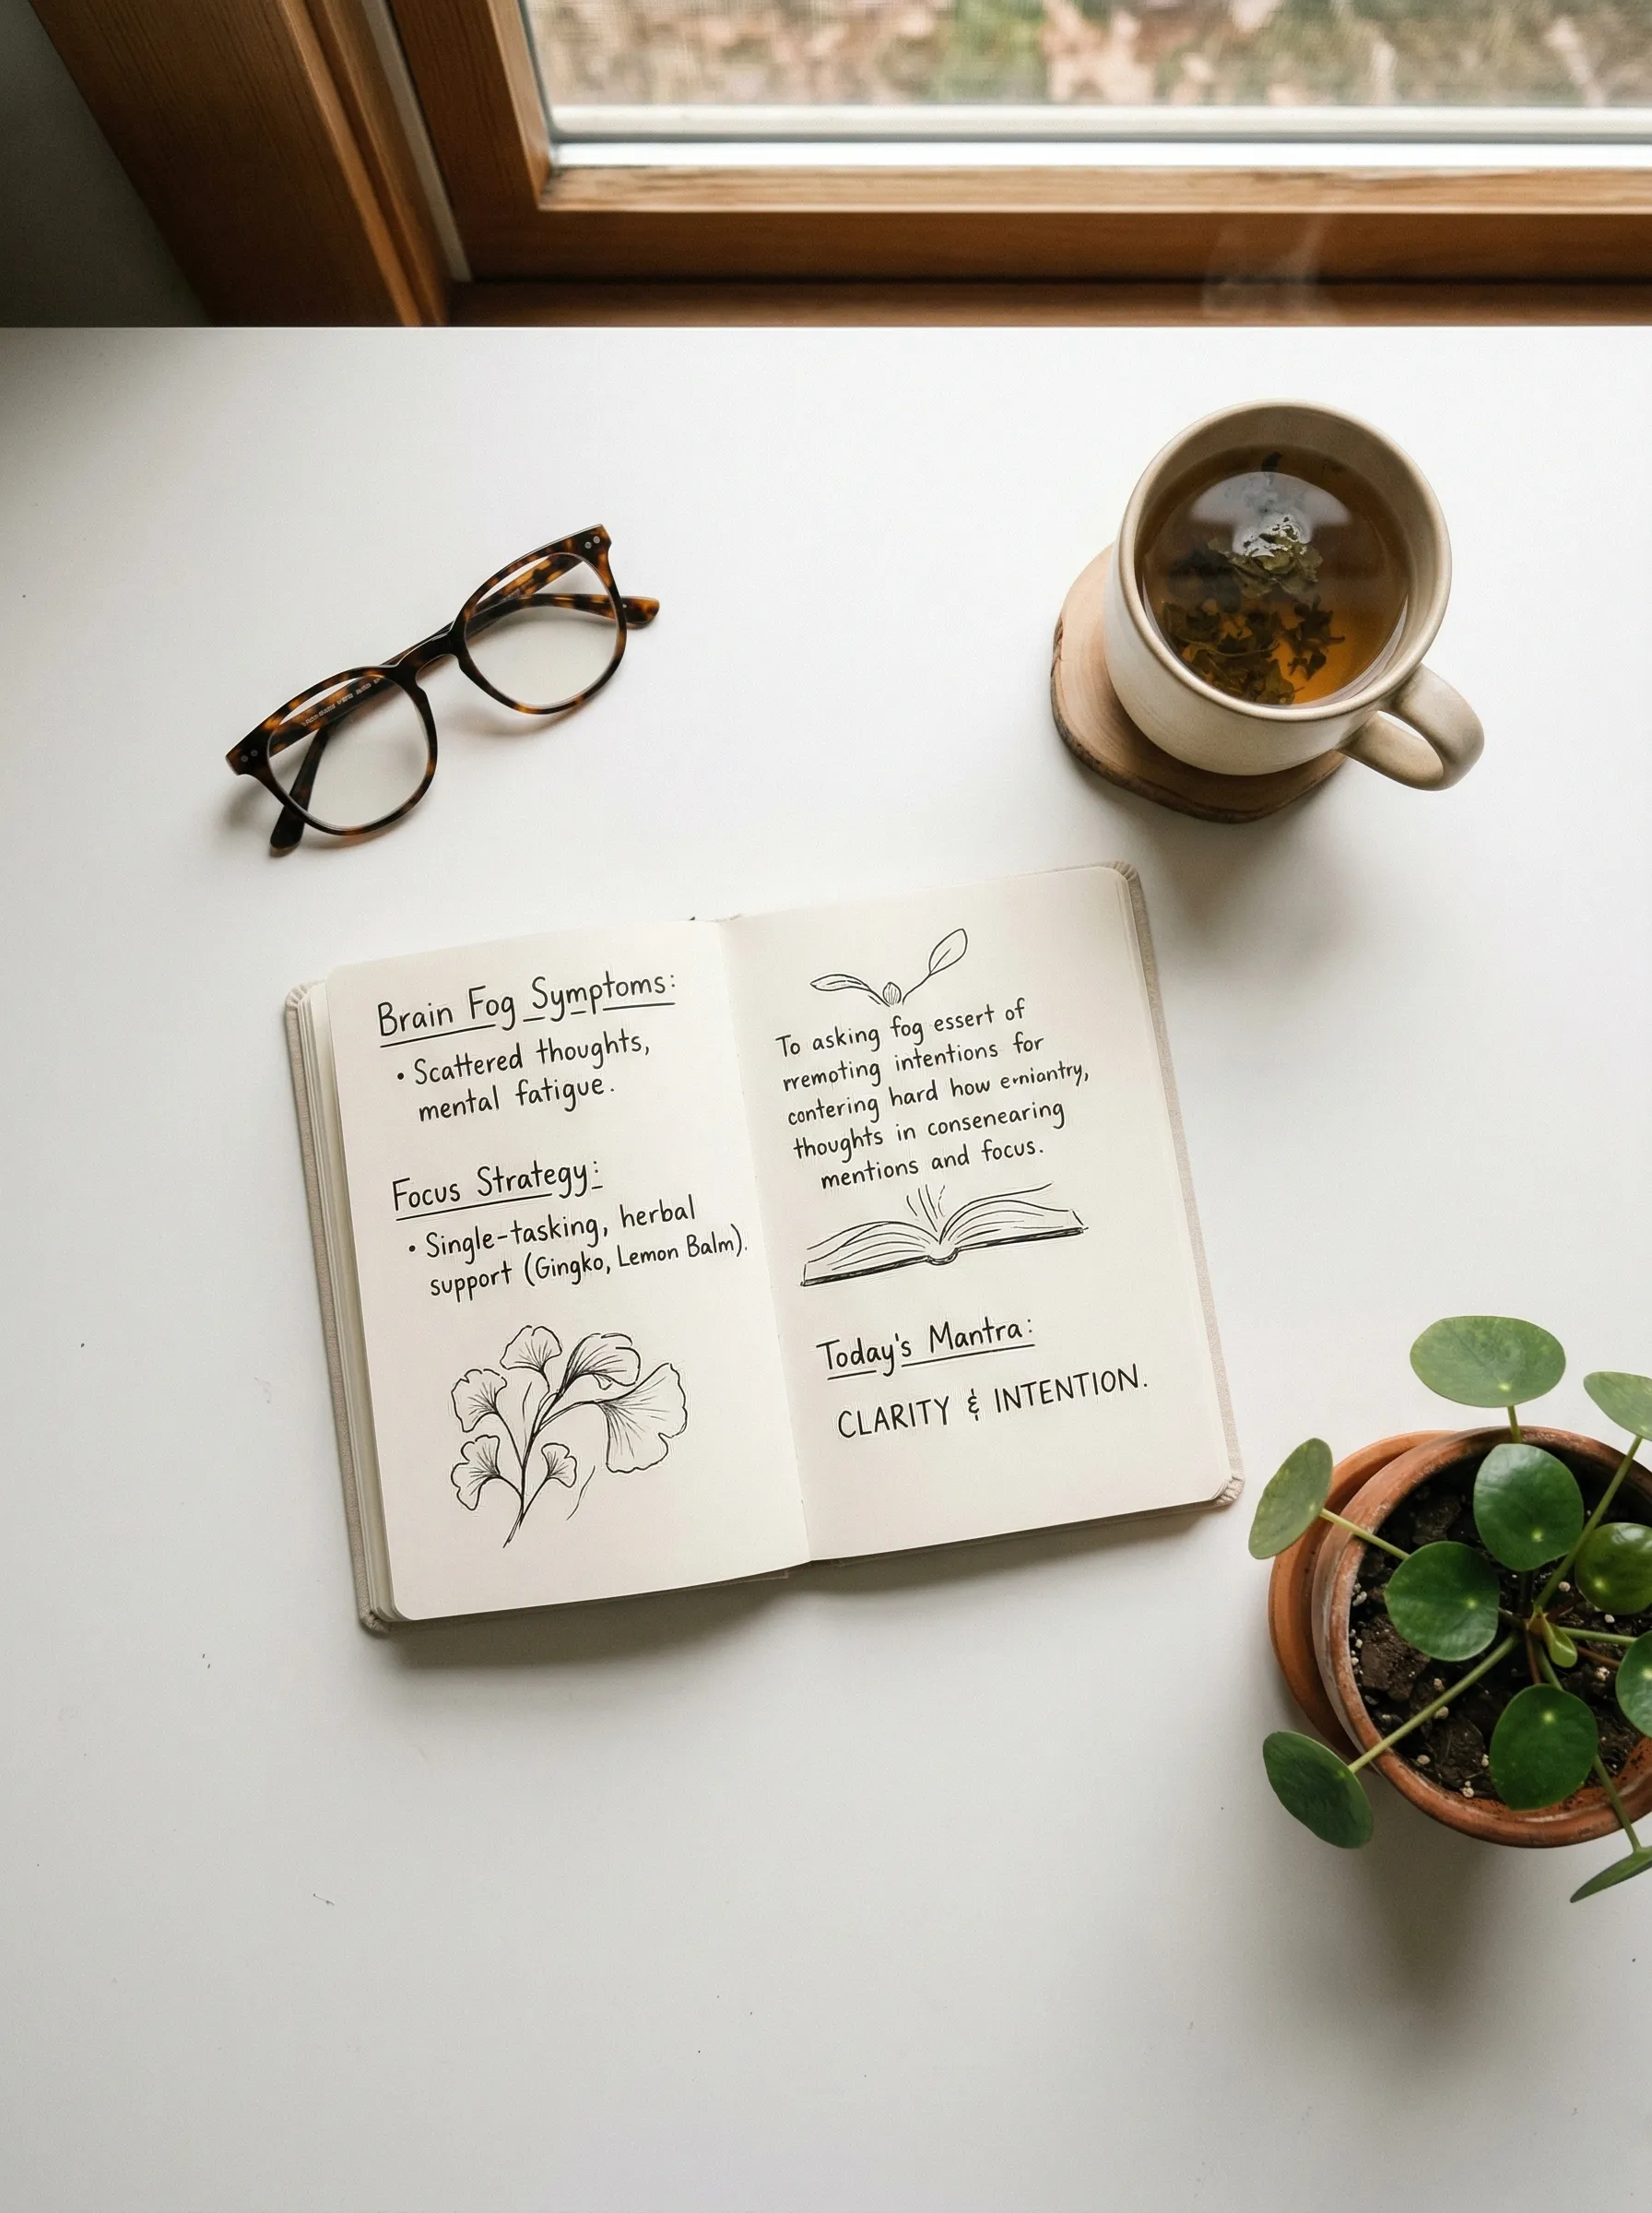 Brain Fog Symptoms:
• Scattered thoughts,
mental fatigue.
Focus Strategy:
• Single-tasking, herbal
support (Gingko, Lemon Balm).
To asking fog essert of
rremoting intentions for
contering hard how
thoughts in consenearing
mentions and focus.
Today's Mantra:
CLARITY & INTENTION.